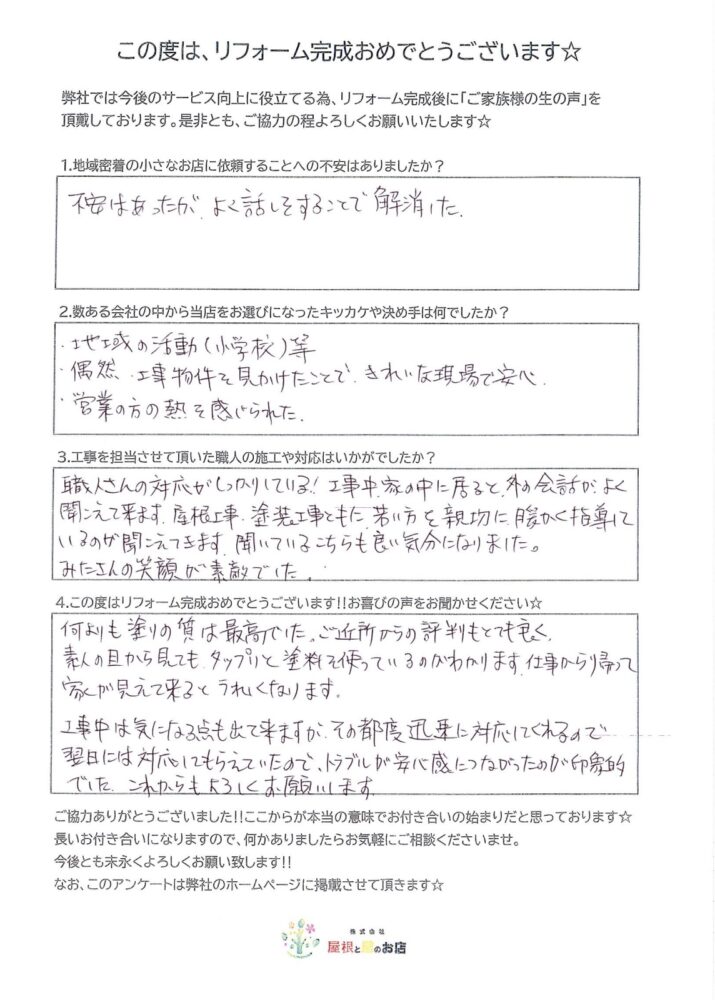 この度は、リフォーム完成おめでとうございます☆
弊社では今後のサービス向上に役立てる為、リフォーム完成後に「ご家族様の生の声」を
頂戴しております。是非とも、ご協力の程よろしくお願いいたします☆
1.地域密着の小さなお店に依頼することへの不安はありましたか？
不安はあったが、よく話しをすることで解消した。
2.数ある会社の中から当店をお選びになったキッカケや決め手は何でしたか？
・地域の活動(小学校)等
・偶然、工事物件を見かけたことで、きれいな現場で安心。
・営業の方の熱を感じられた。
3.工事を担当させて頂いた職人の施工や対応はいかがでしたか？
職人さんの対応がしっかりしている！工事中、家の中に居ると、外の会話が、よく
聞こえて来ます。屋根工事、塗装工事ともに、若い方を親切に、暖かく指導して
いるのが聞こえてきます。聞いているこちらも良い気分になりました。
みなさんの笑顔が素敵でした。
4.この度はリフォーム完成おめでとうございます!!お喜びの声をお聞かせください☆
何よりも塗りの質は最高でした。ご近所からの評判もとても良く、
素人の目から見ても、タップリと塗料を使っているのがわかります。仕事から帰って
家が見えて来るとうれしくなります。
工事中は気になる点も出て来ますが、その都度迅速に対応してくれるので
翌日には対応してもらえていたので、トラブルが安心感につながったのが印象的
でした。これからもよろしくお願いします。
ご協力ありがとうございました!!ここからが本当の意味でお付き合いの始まりだと思っております☆
長いお付き合いになりますので、何かありましたらお気軽にご相談くださいませ。
今後とも末永くよろしくお願い致します!!
なお、このアンケートは弊社のホームページに掲載させて頂きます☆
株式会社
屋根と壁のお店